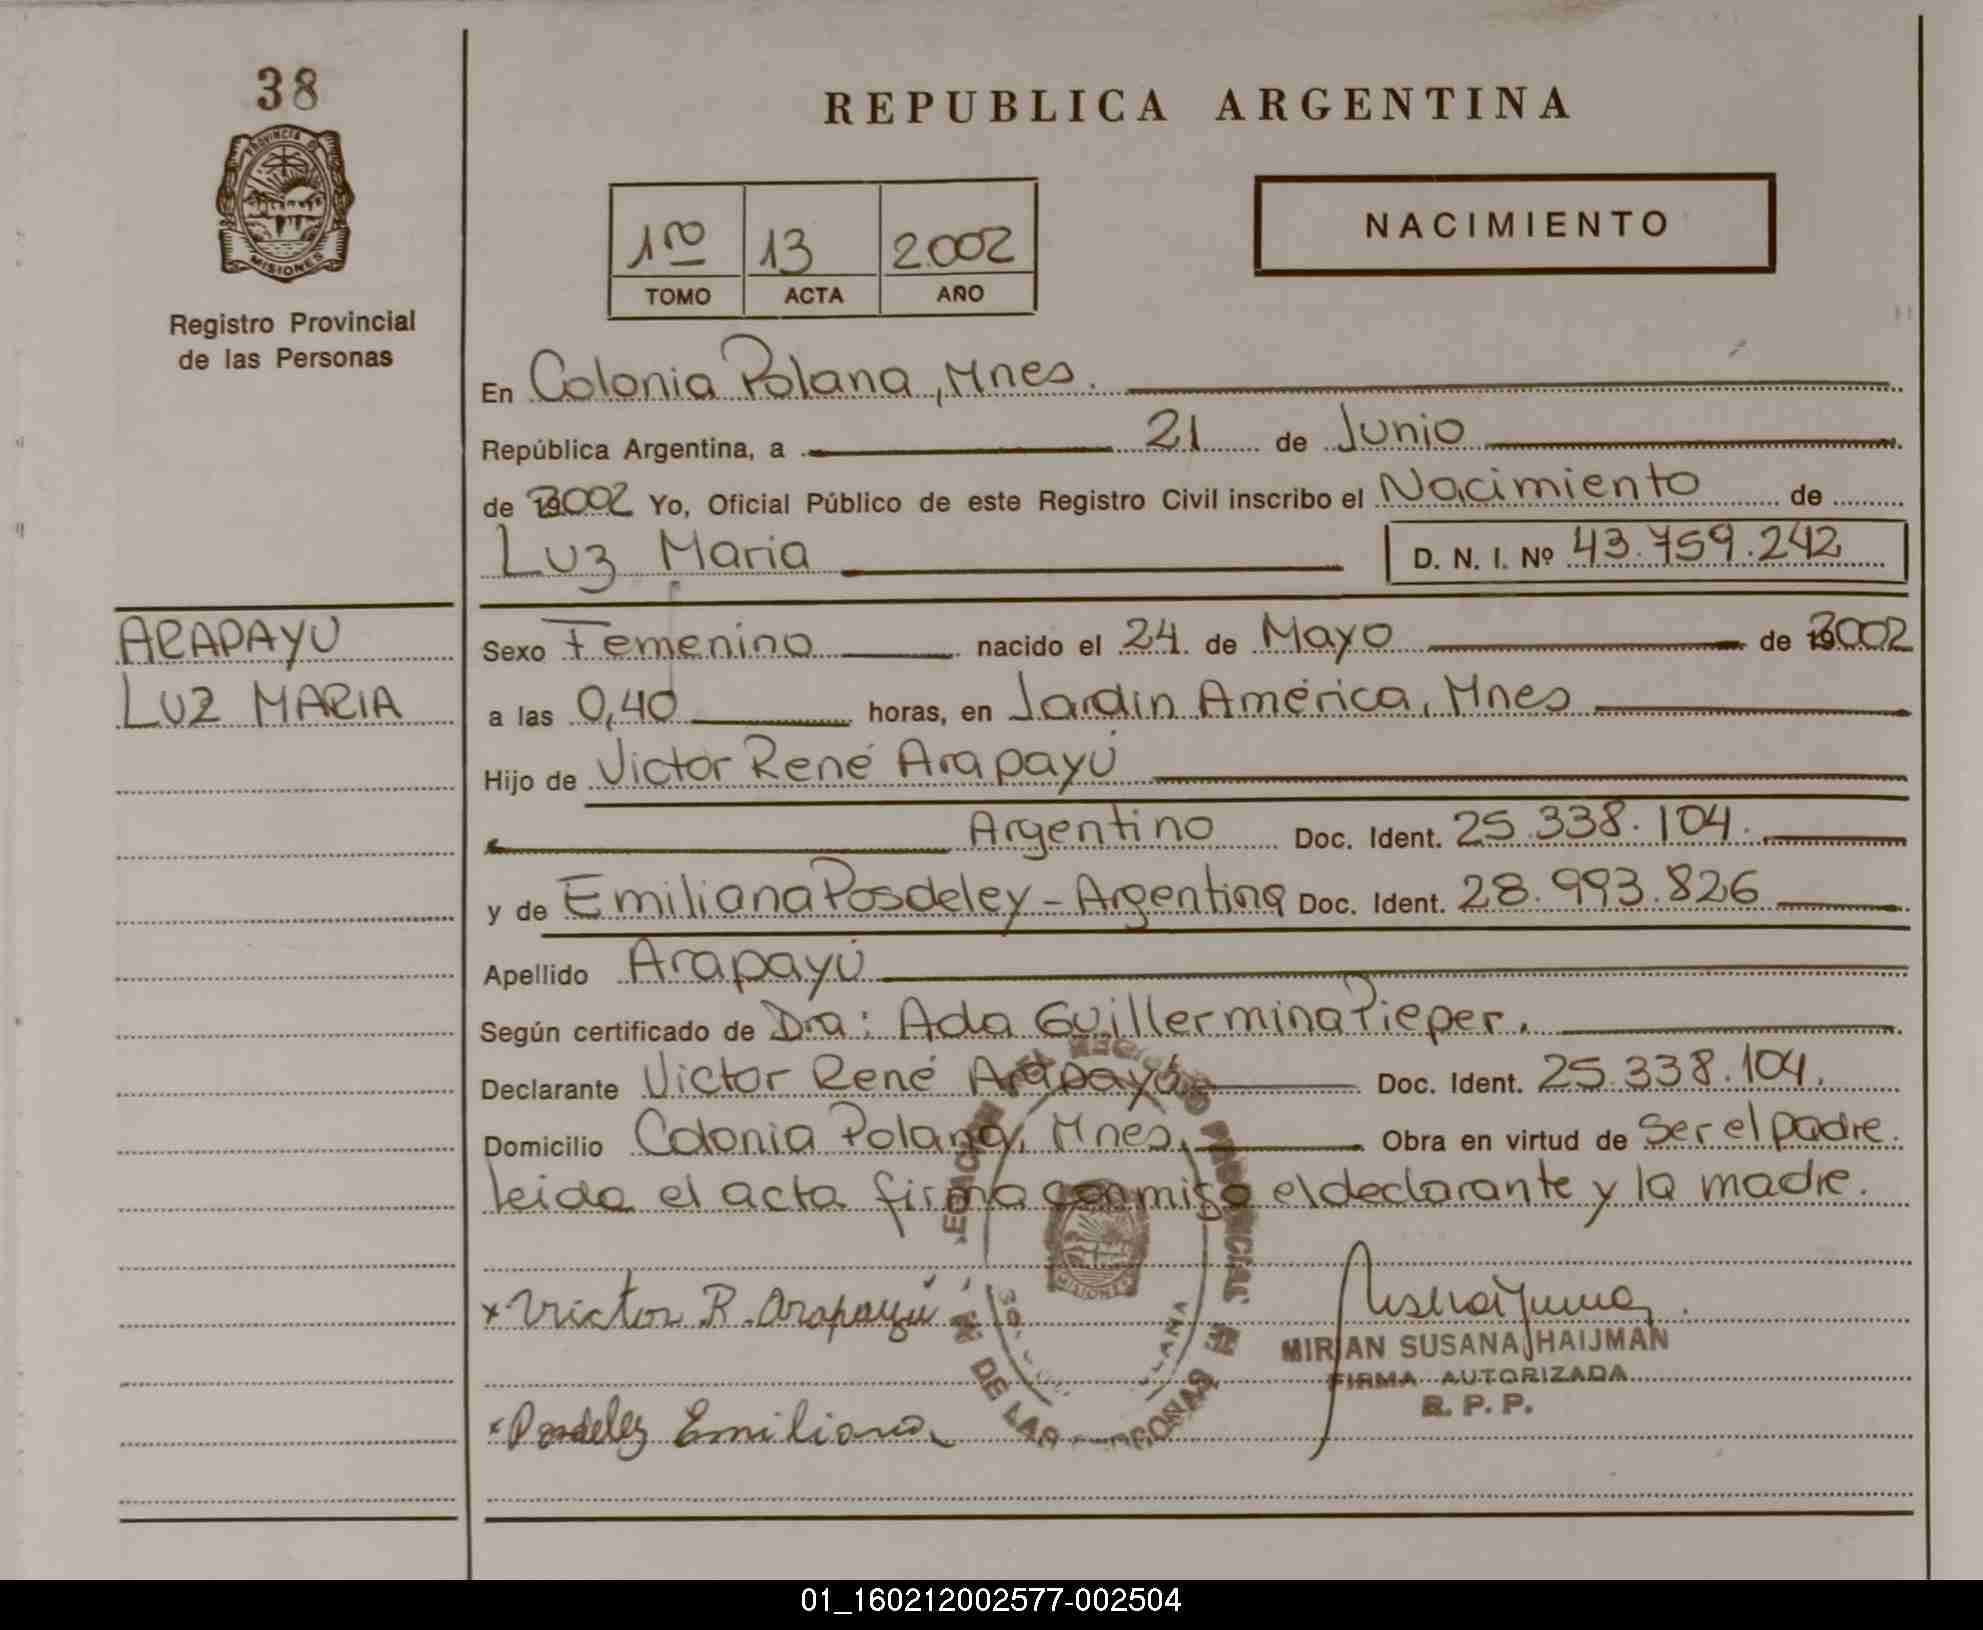 38
PROVINCIA DE
MISIONES
Registro Provincial
de las Personas
REPUBLICA ARGENTINA
NACIMIENTO
1ro 13 2.002
TOMO ACTA AÑO
En Colonia Polana, Mnes.
República Argentina, a 21 de Junio
de 2002 Yo, Oficial Público de este Registro Civil inscribo el Nacimiento de
Luz Maria D. N. I. Nº 43.759.242
ARAPAYU
LUZ MARIA
Sexo Femenino nacido el 24 de Mayo de 2002
a las 0,40 horas, en Jardín América, Mnes
Hijo de Victor René Arapayú
Argentino Doc. Ident. 25.338.104.
y de Emiliana Posdeley - Argentina Doc. Ident. 28.993.826
Apellido Arapayú
Según certificado de Dra: Ada Guillermina Pieper.
Declarante Victor René Arapayú Doc. Ident. 25.338.104.
Domicilio Colonia Polana, Mnes. Obra en virtud de Ser el padre.
leida el acta firma conmigo el declarante y la madre.
x Victor R. Arapayú
MIRIAN SUSANA HAIJMAN
FIRMA AUTORIZADA
R. P. P.
x Posdeley Emiliana
01_160212002577-002504